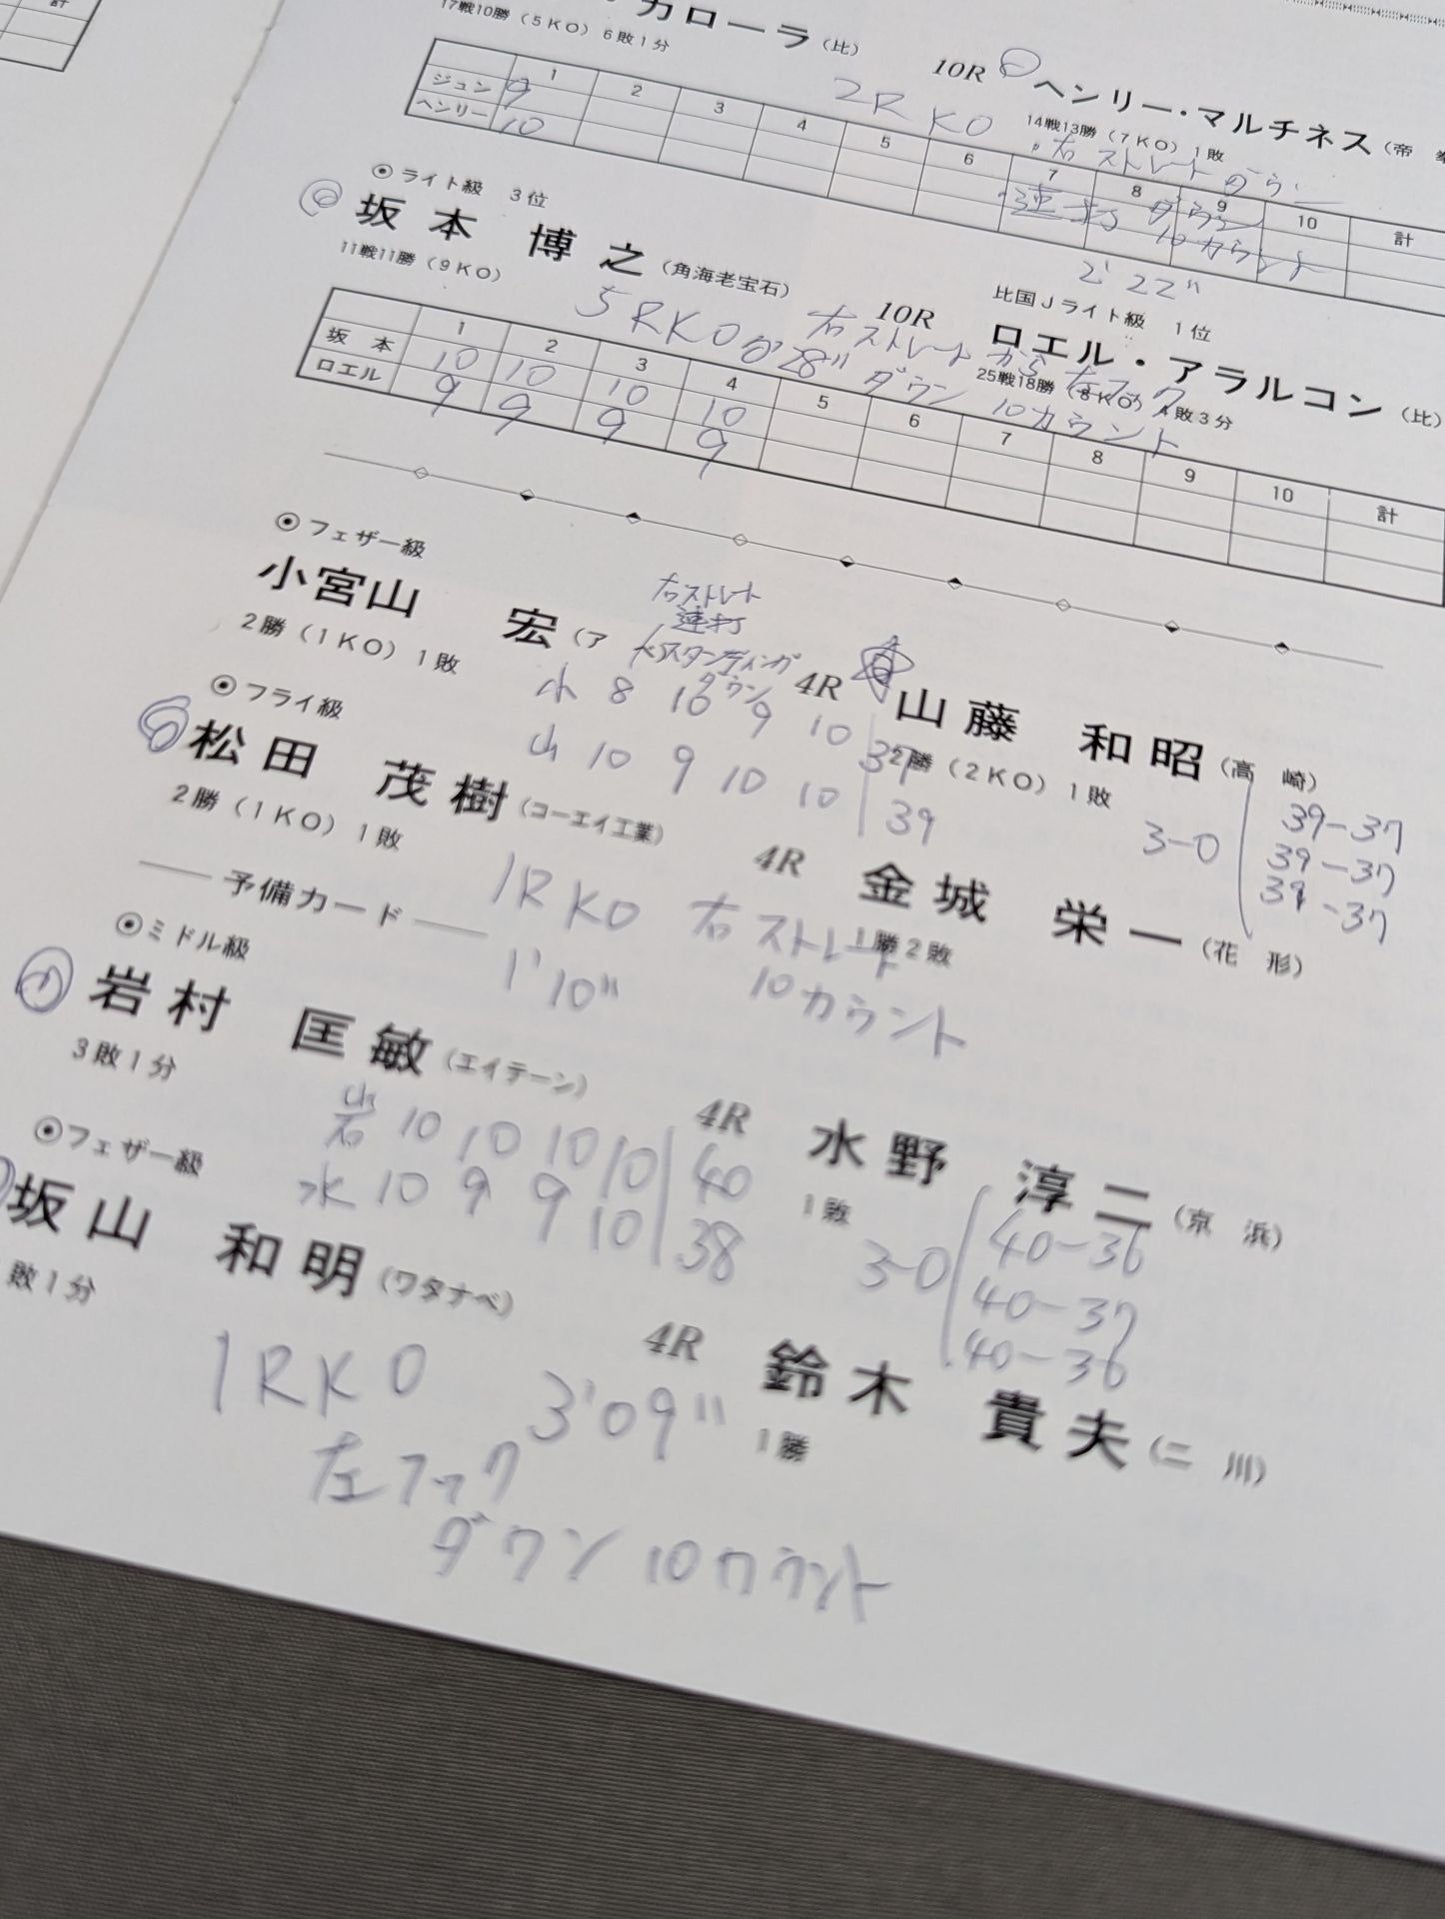 計
カローラ（比）
17戦10勝（5KO）6敗1分
10R ヘンリー・マルチネス（帝 拳
14戦13勝（7KO）1敗
2R KO 右ストレートダウン
連打 ダウン
10カウント
2'22"
1 2 3 4 5 6 7 8 9 10 計
ジュン 9
ヘンリー 10
ライト級 3位
坂本 博之（角海老宝石）
11戦11勝（9KO）
10R
比国Jライト級 1位
ロエル・アラルコン（比）
25戦18勝（8KO）4敗3分
5RKO 28" 右ストレートから左フック
ダウン 10カウント
1 2 3 4 5 6 7 8 9 10 計
坂本 10 10 10 10
ロエル 9 9 9 9
フェザー級
小宮山 宏（ア
2勝（1KO）1敗
右ストレート
連打
スタンディング
ダウン
4R
山藤 和昭（高 崎）
2勝（2KO）1敗
小 8 10 9 10 37
山 10 9 10 10 39
3-0
39-37
39-37
39-37
フライ級
松田 茂樹（コーエイ工業）
2勝（1KO）1敗
4R
金城 栄一（花 形）
1勝2敗
1RKO 右ストレート
1'10" 10カウント
予備カード
ミドル級
岩村 匡敏（エイテーン）
3敗1分
4R
水野 淳二（京 浜）
1敗
岩 10 10 10 10 40
水 10 9 9 10 38
3-0
40-36
40-37
40-36
フェザー級
坂山 和明（ワタナベ）
敗1分
4R
鈴木 貴夫（二 川）
1勝
1RKO 3'09"
左フック
ダウン 10カウント